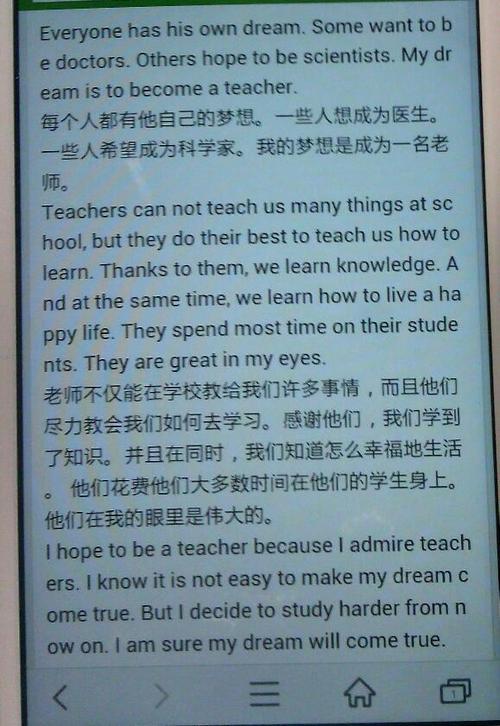 Everyone has his own dream. Some want to b
e doctors. Others hope to be scientists. My dr
eam is to become a teacher.
每个人都有他自己的梦想。一些人想成为医生。
一些人希望成为科学家。我的梦想是成为一名老
师。
Teachers can not teach us many things at sc
hool, but they do their best to teach us how to
learn. Thanks to them, we learn knowledge. A
nd at the same time, we learn how to live a ha
ppy life. They spend most time on their stude
nts. They are great in my eyes.
老师不仅能在学校教给我们许多事情，而且他们
尽力教会我们如何去学习。感谢他们，我们学到
了知识。并且在同时，我们知道怎么幸福地生活
。 他们花费他们大多数时间在他们的学生身上。
他们在我的眼里是伟大的。
I hope to be a teacher because I admire teach
ers. I know it is not easy to make my dream c
ome true. But I decide to study harder from n
ow on. I am sure my dream will come true.
1